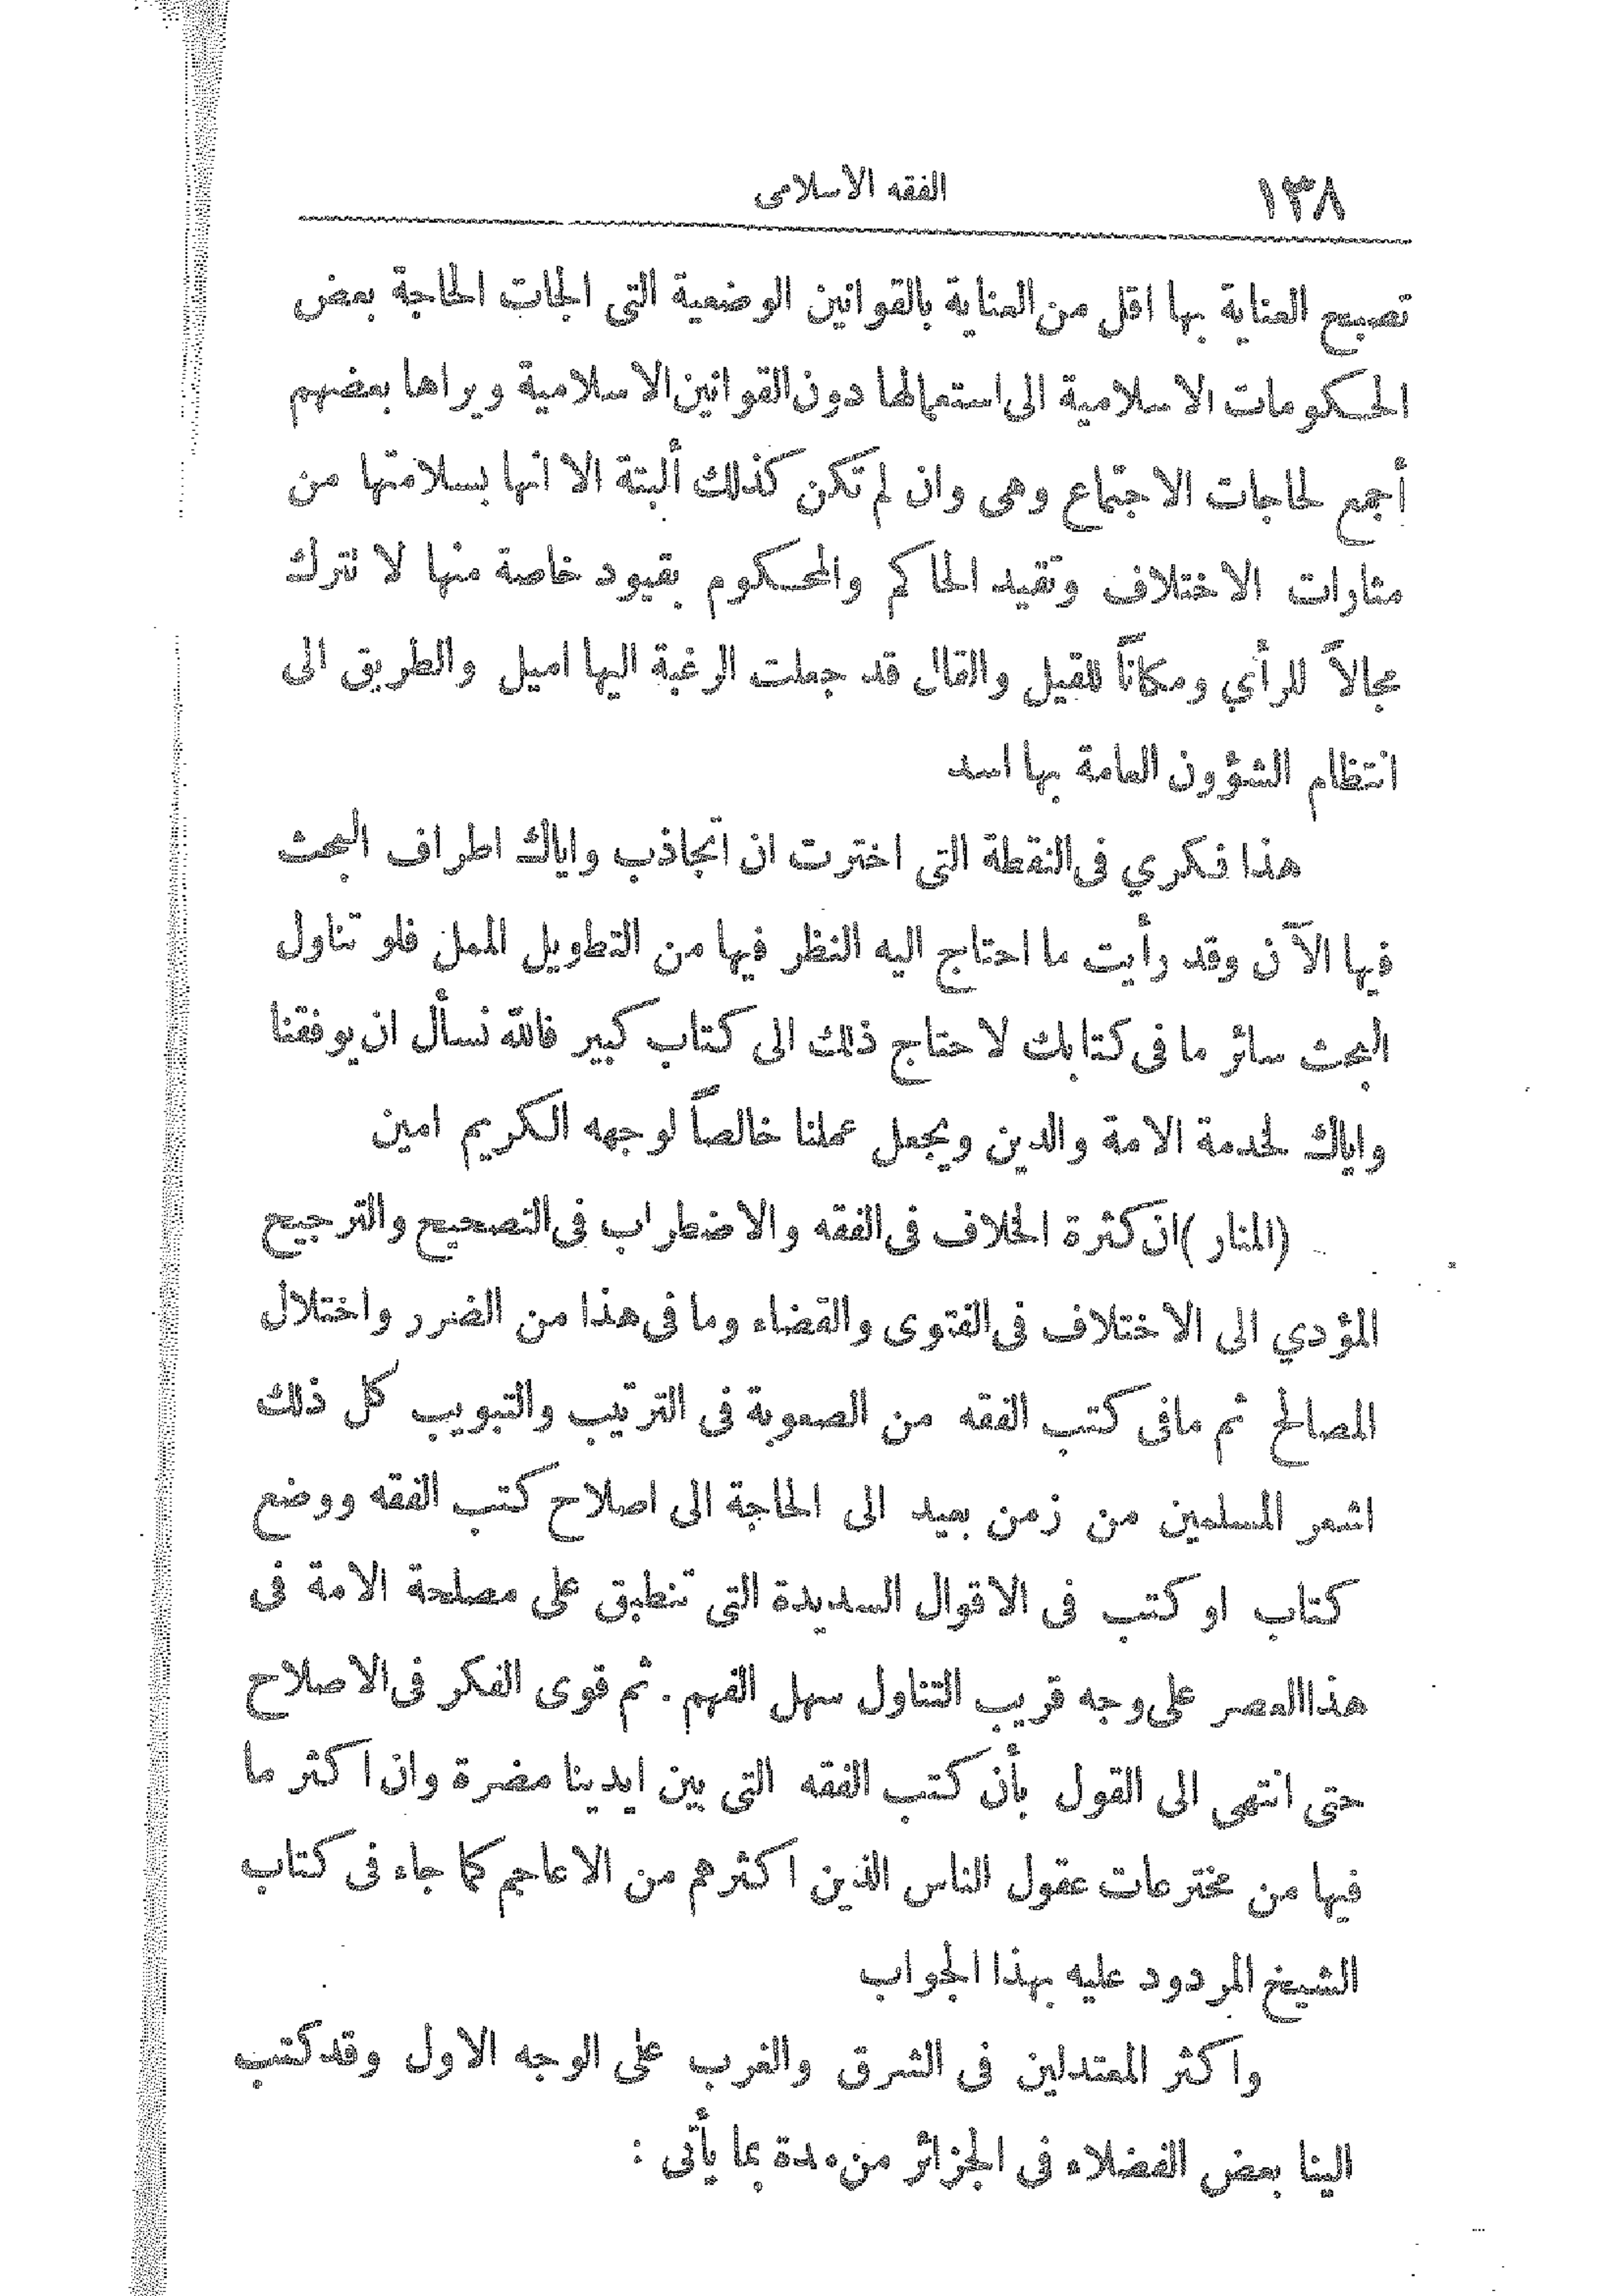 ١٣٨ الفقه الاسلامى
تصبح العناية بها اقل من العناية بالقوانين الوضعية التى الجات الحاجة بعض
الحكومات الاسلامية الى استعمالها دون القوانين الاسلامية ويراها بعضهم
أجمع لحاجات الاجتماع وهى وان لم تكن كذلك ألبتة الا انها بسلامتها من
مثارات الاختلاف وتقيد الحاكم والمحكوم بقيود خاصة منها لا تترك
مجالاً للرأي ومكاناً للقيل والقال قد جعلت الرغبة اليها اميل والطريق الى
انتظام الشؤون العامة بها اسد
هذا فكري فى النقطة التى اخترت ان اتجاذب واياك اطراف البحث
فيها الآن وقد رأيت ما احتاج اليه النظر فيها من التطويل الممل فلو تناول
البحث سائر ما فى كتابك لاحتاج ذلك الى كتاب كبير فالله نسأل ان يوفقنا
واياك لخدمة الامة والدين ويجعل عملنا خالصاً لوجهه الكريم امين
(المنار) ان كثرة الخلاف فى الفقه والاضطراب فى التصحيح والترجيح
المؤدي الى الاختلاف فى الفتوى والقضاء وما فى هذا من الضرر واختلال
المصالح ثم مافى كتب الفقه من الصعوبة فى الترتيب والتبويب كل ذلك
اشعر المسلمين من زمن بعيد الى الحاجة الى اصلاح كتب الفقه ووضع
كتاب او كتب فى الاقوال السديدة التى تنطبق على مصلحة الامة فى
هذا العصر على وجه قريب التناول سهل الفهم. ثم قوى الفكر فى الاصلاح
حتى انتهى الى القول بأن كتب الفقه التى بين ايدينا مضرة وان اكثر ما
فيها من مخترعات عقول الناس الذين اكثرهم من الاعاجم كما جاء فى كتاب
الشيخ المردود عليه بهذا الجواب
واكثر المعتدلين فى الشرق والغرب على الوجه الاول وقد كتب
الينا بعض الفضلاء فى الجزائر من مدة بما يأتى :